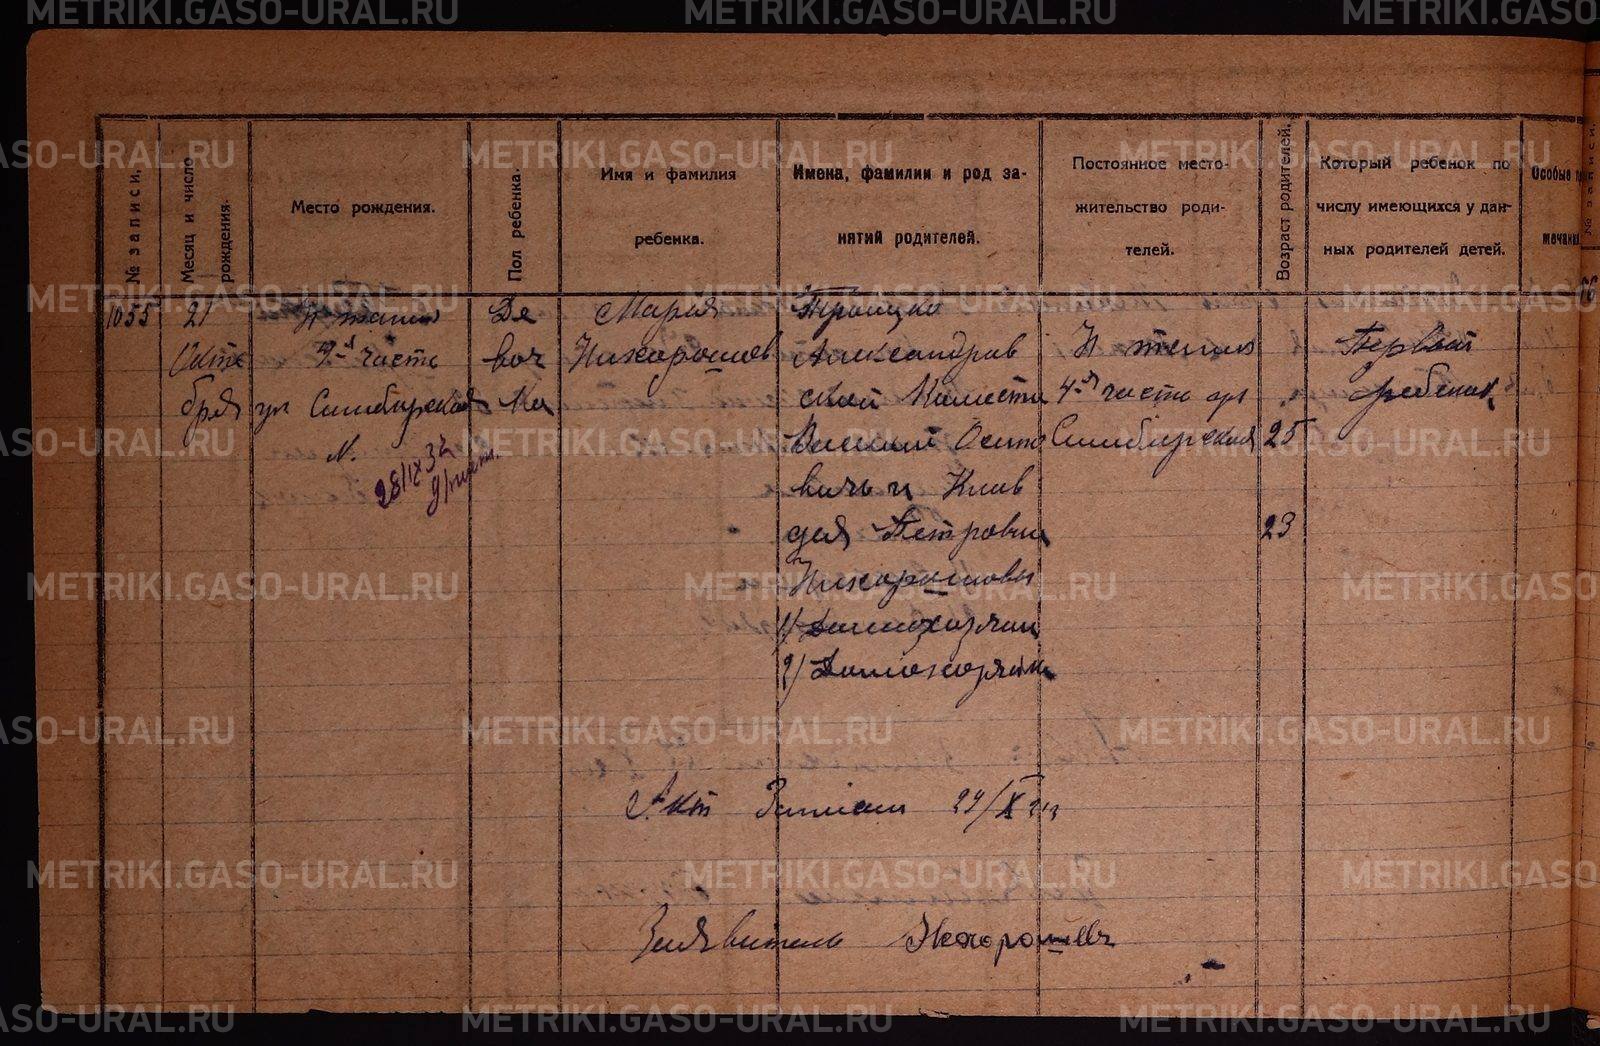 № записи.
Месяц и число рождения.
Место рождения.
Пол ребенка.
Имя и фамилия
ребенка.
Имена, фамилии и род за-
нятий родителей.
Постоянное место-
жительство роди-
телей.
Возраст родителей.
Который ребенок по
числу имеющихся у дан-
ных родителей детей.
Особые
мечания
№ записи.
1055
21
Октя
бря
Н тагил
часть
ул Симбирская
N.
28/IX 32
Де
воч
ка
Мария
Нихорошев
Троицко
Александров
ской
Василий Осипо
вичь и Клав
дия Петровна
Нихорошовы
1/ Домохозяин
2/ Домохозяйка
Н тагил
4-я часть
Симбирская
25
23
Первый
ребенок
Акт Записан
Заявитель Нехорошевъ
METRIKI.GASO-URAL.RU